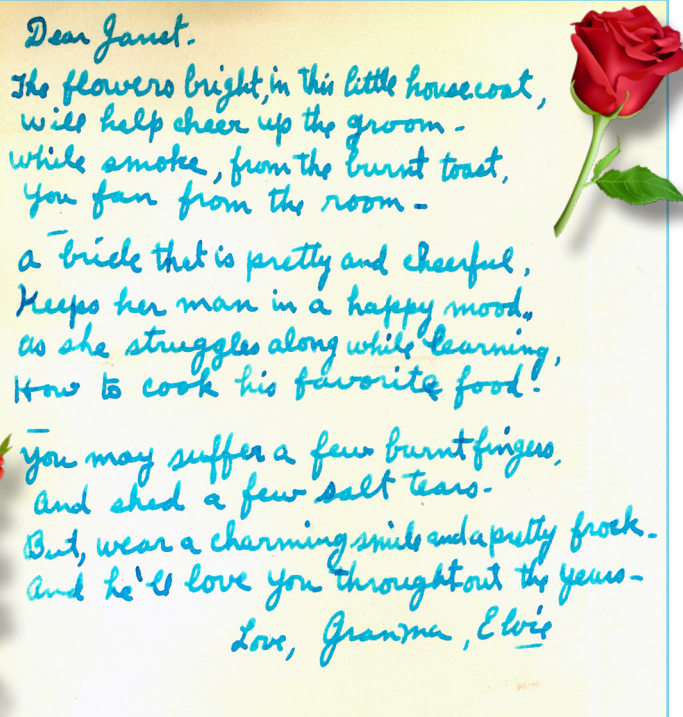 Dear Janet.
The flowers bright, in this little housecoat,
will help cheer up the groom -
while smoke, from the burnt toast,
You fan from the room -
a bride that is pretty and cheerful,
Keeps her man in a happy mood,,
as she struggles along while learning,
How to cook his favorite food.
You may suffer a few burnt fingers,
and shed a few salt tears -
But, wear a charming smile and a pretty frock -
and he'll love you throughtout the years -
Love, Granma, Elvie